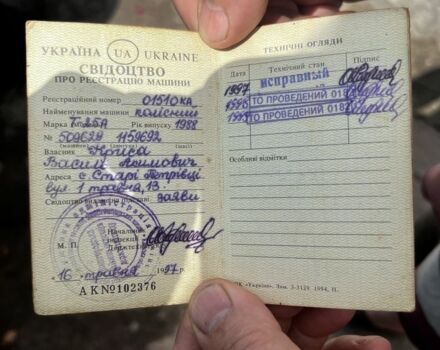 УКРАЇНА UA UKRAINE
СВІДОЦТВО
ПРО РЕЄСТРАЦІЮ МАШИНИ
Реєстраційний номер 01510КА
Найменування машини колісний
Марка Т-25А Рік випуску 1988
№ 509629 1159692
Власник
Васил Якимович
Адреса с. Старі Петрівці
вул 1 травня, 13
Свідоцтво видано на підставі заяви
Начальник
М. П.
16 травня 1997
АК№102376
ТЕХНІЧНІ ОГЛЯДИ
Дата Технічний стан Підпис
1997 исправный
1998 ТО ПРОВЕДЕНИЙ 018
1999 ТО ПРОВЕДЕНИЙ 018
Особливі відмітки
«Україна». Зам. 3-3129. 1994. П.